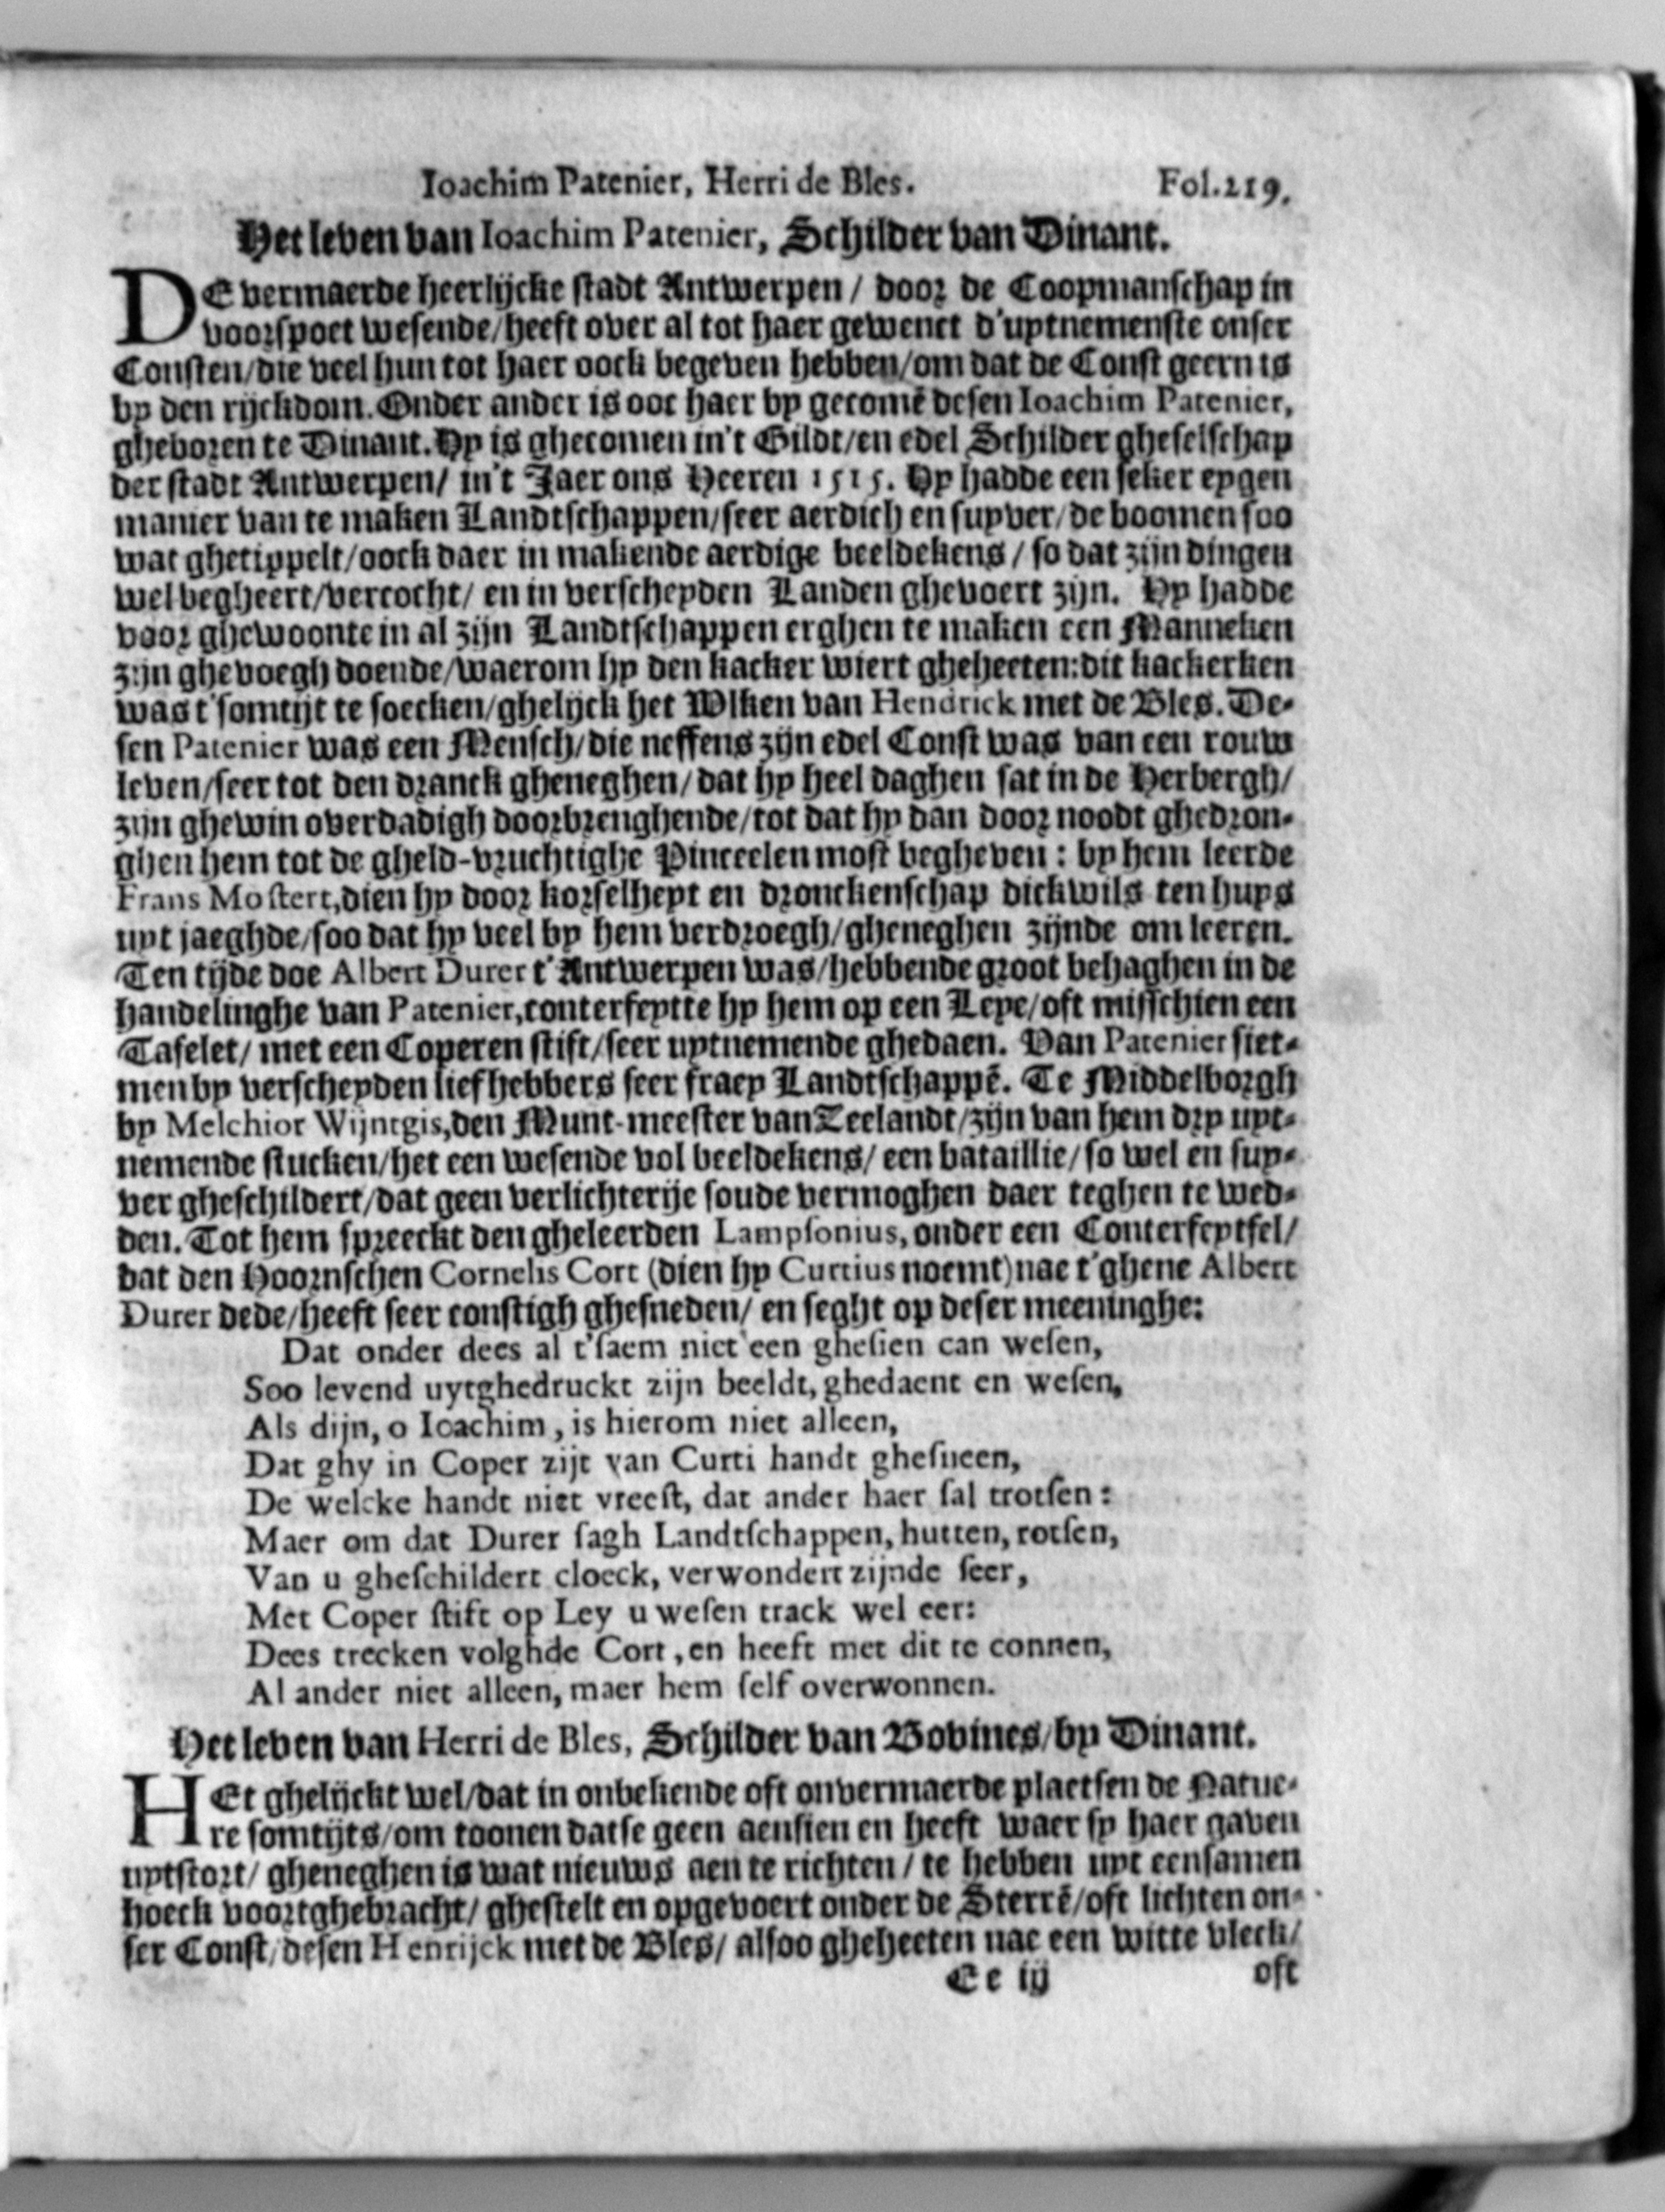 Ioachim Patenier, Herri de Bles. Fol.219.
Het leven van Ioachim Patenier, Schilder van Dinant.
DE vermaerde heerlijcke stadt Antwerpen / door de Coopmanschap in
voorspoet wesende/heeft over al tot haer gewenct d'uytnemenste onser
Consten/die veel hun tot haer oock begeven hebben/om dat de Const geern is
by den rijckdom. Onder ander is ooc haer by gecomē desen Ioachim Patenier,
gheboren te Dinant. Hy is ghecomen in't Gildt/en edel Schilder gheselschap
der stadt Antwerpen/ in't Jaer ons Heeren 1515. Hy hadde een seker eygen
manier van te maken Landtschappen/seer aerdich en suyver/de boomen soo
wat ghetippelt/oock daer in makende aerdige beeldekens / so dat zijn dingen
wel begheert/vercocht/ en in verscheyden Landen ghevoert zijn. Hy hadde
voor ghewoonte in al zijn Landtschappen erghen te maken een Manneken
zijn ghevoegh doende/waerom hy den kacker wiert gheheeten:dit kackerken
was t'somtijt te soecken/ghelijck het Wlken van Hendrick met de Bles. De-
sen Patenier was een Mensch/die neffens zijn edel Const was van een rouw
leven/seer tot den dranck gheneghen/dat hy heel daghen sat in de Herbergh/
zijn ghewin overdadigh doorbrenghende/tot dat hy dan door noodt ghedron-
ghen hem tot de gheld-vruchtighe Pinceelen most begheven : by hem leerde
Frans Mostert,dien hy door korselheyt en dronckenschap dickwils ten huys
uyt jaeghde/soo dat hy veel by hem verdroegh/gheneghen zijnde om leeren.
Ten tijde doe Albert Durer t'Antwerpen was/hebbende groot behaghen in de
handelinghe van Patenier,conterfeytte hy hem op een Leye/oft misschien een
Tafelet/ met een Coperen stift/seer uytnemende ghedaen. Van Patenier siet-
men by verscheyden liefhebbers seer fraey Landtschappē. Te Middelborgh
by Melchior Wijntgis,den Munt-meester van Zeelandt/zijn van hem dry uyt-
nemende stucken/het een wesende vol beeldekens/ een bataillie/so wel en suy-
ver gheschildert/dat geen verlichterije soude vermoghen daer teghen te wed-
den. Tot hem spreeckt den gheleerden Lampsonius, onder een Conterfeytsel/
dat den Hoornschen Cornelis Cort (dien hy Curtius noemt)nae t'ghene Albert
Durer dede/heeft seer constigh ghesneden/ en seght op deser meeninghe:
Dat onder dees al t'saem niet een ghesien can wesen,
Soo levend uytghedruckt zijn beeldt, ghedaent en wesen,
Als dijn, o Ioachim, is hierom niet alleen,
Dat ghy in Coper zijt van Curti handt ghesneen,
De welcke handt niet vreest, dat ander haer sal trotsen:
Maer om dat Durer sagh Landtschappen, hutten, rotsen,
Van u gheschildert cloeck, verwondert zijnde seer,
Met Coper stift op Ley u wesen track wel eer:
Dees trecken volghde Cort, en heeft met dit te connen,
Al ander niet alleen, maer hem self overwonnen.
Het leven van Herri de Bles, Schilder van Bovines/by Dinant.
HEt ghelijckt wel/dat in onbekende oft onvermaerde plaetsen de Natue-
re somtijts/om toonen datse geen aensien en heeft waer sy haer gaven
uytstort/ gheneghen is wat nieuws aen te richten / te hebben uyt eensamen
hoeck voortghebracht/ ghestelt en opgevoert onder de Sterrē/oft lichten on-
ser Const/desen Henrijck met de Bles/ alsoo gheheeten nae een witte vleck/
Ee ij oft